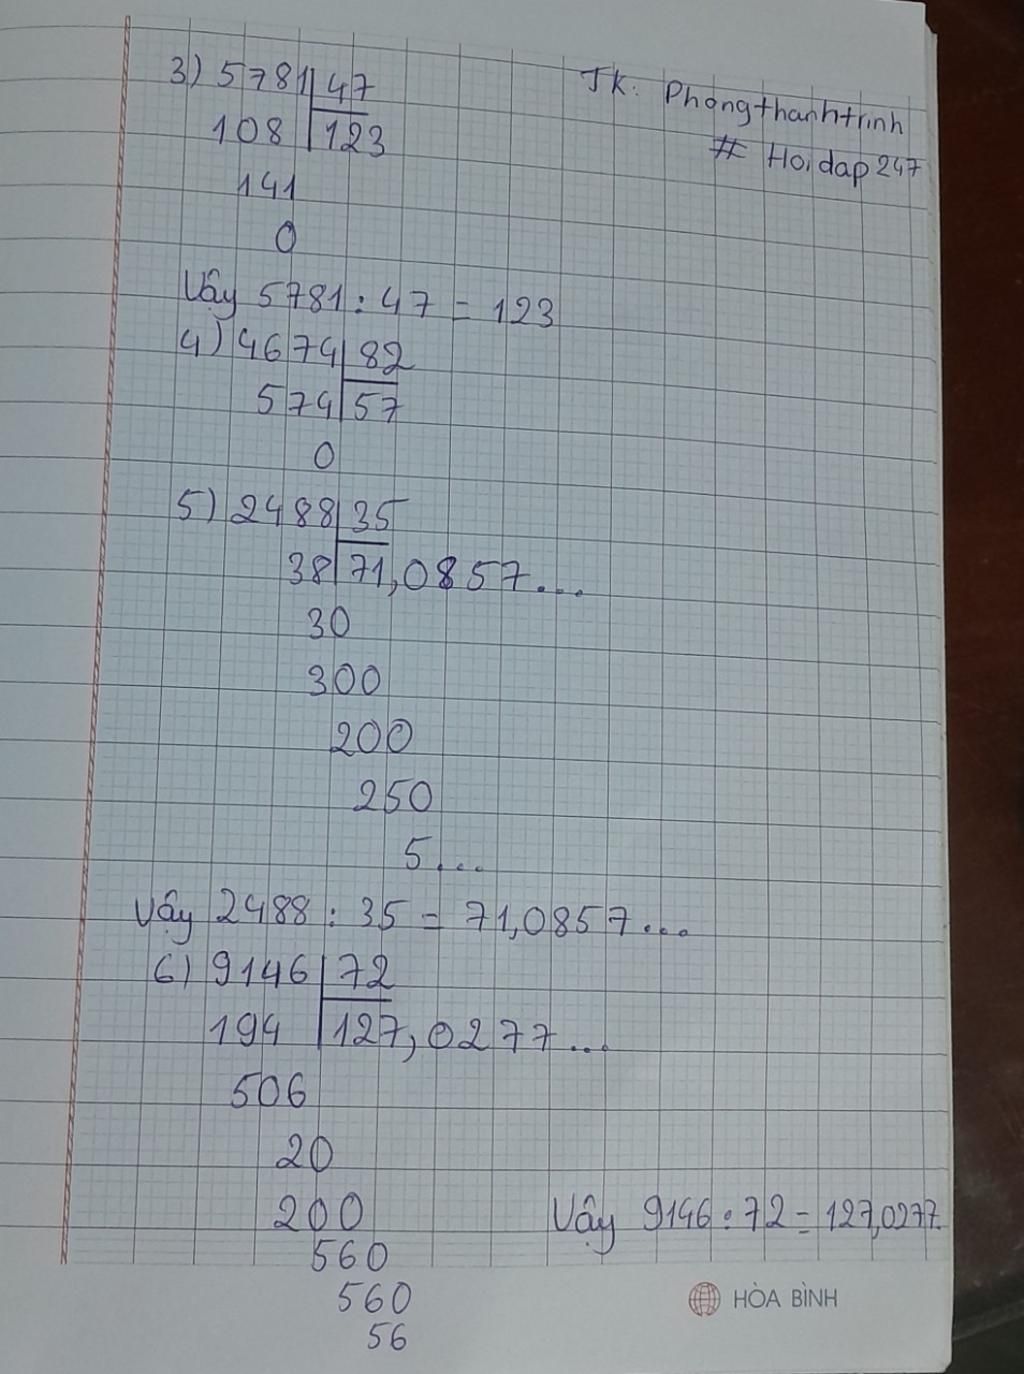 3) 5781 47
JK: Phongthanhtrinh
108 123
# Hoidap247
141
0
Vậy 5781 : 47 = 123
4) 4674 82
574 57
0
5) 2488 35
38 71,0857...
30
300
200
250
5...
Vậy 2488 : 35 = 71,0857...
6) 9146 72
194 127,0277...
506
20
200
Vậy 9146 : 72 = 127,0277.
560
560
56
HÒA BÌNH